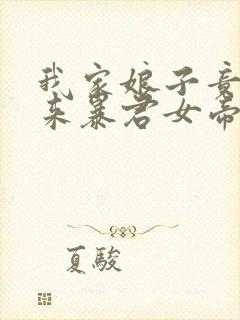 我家娘子竟
来暴君女帝
夏駿